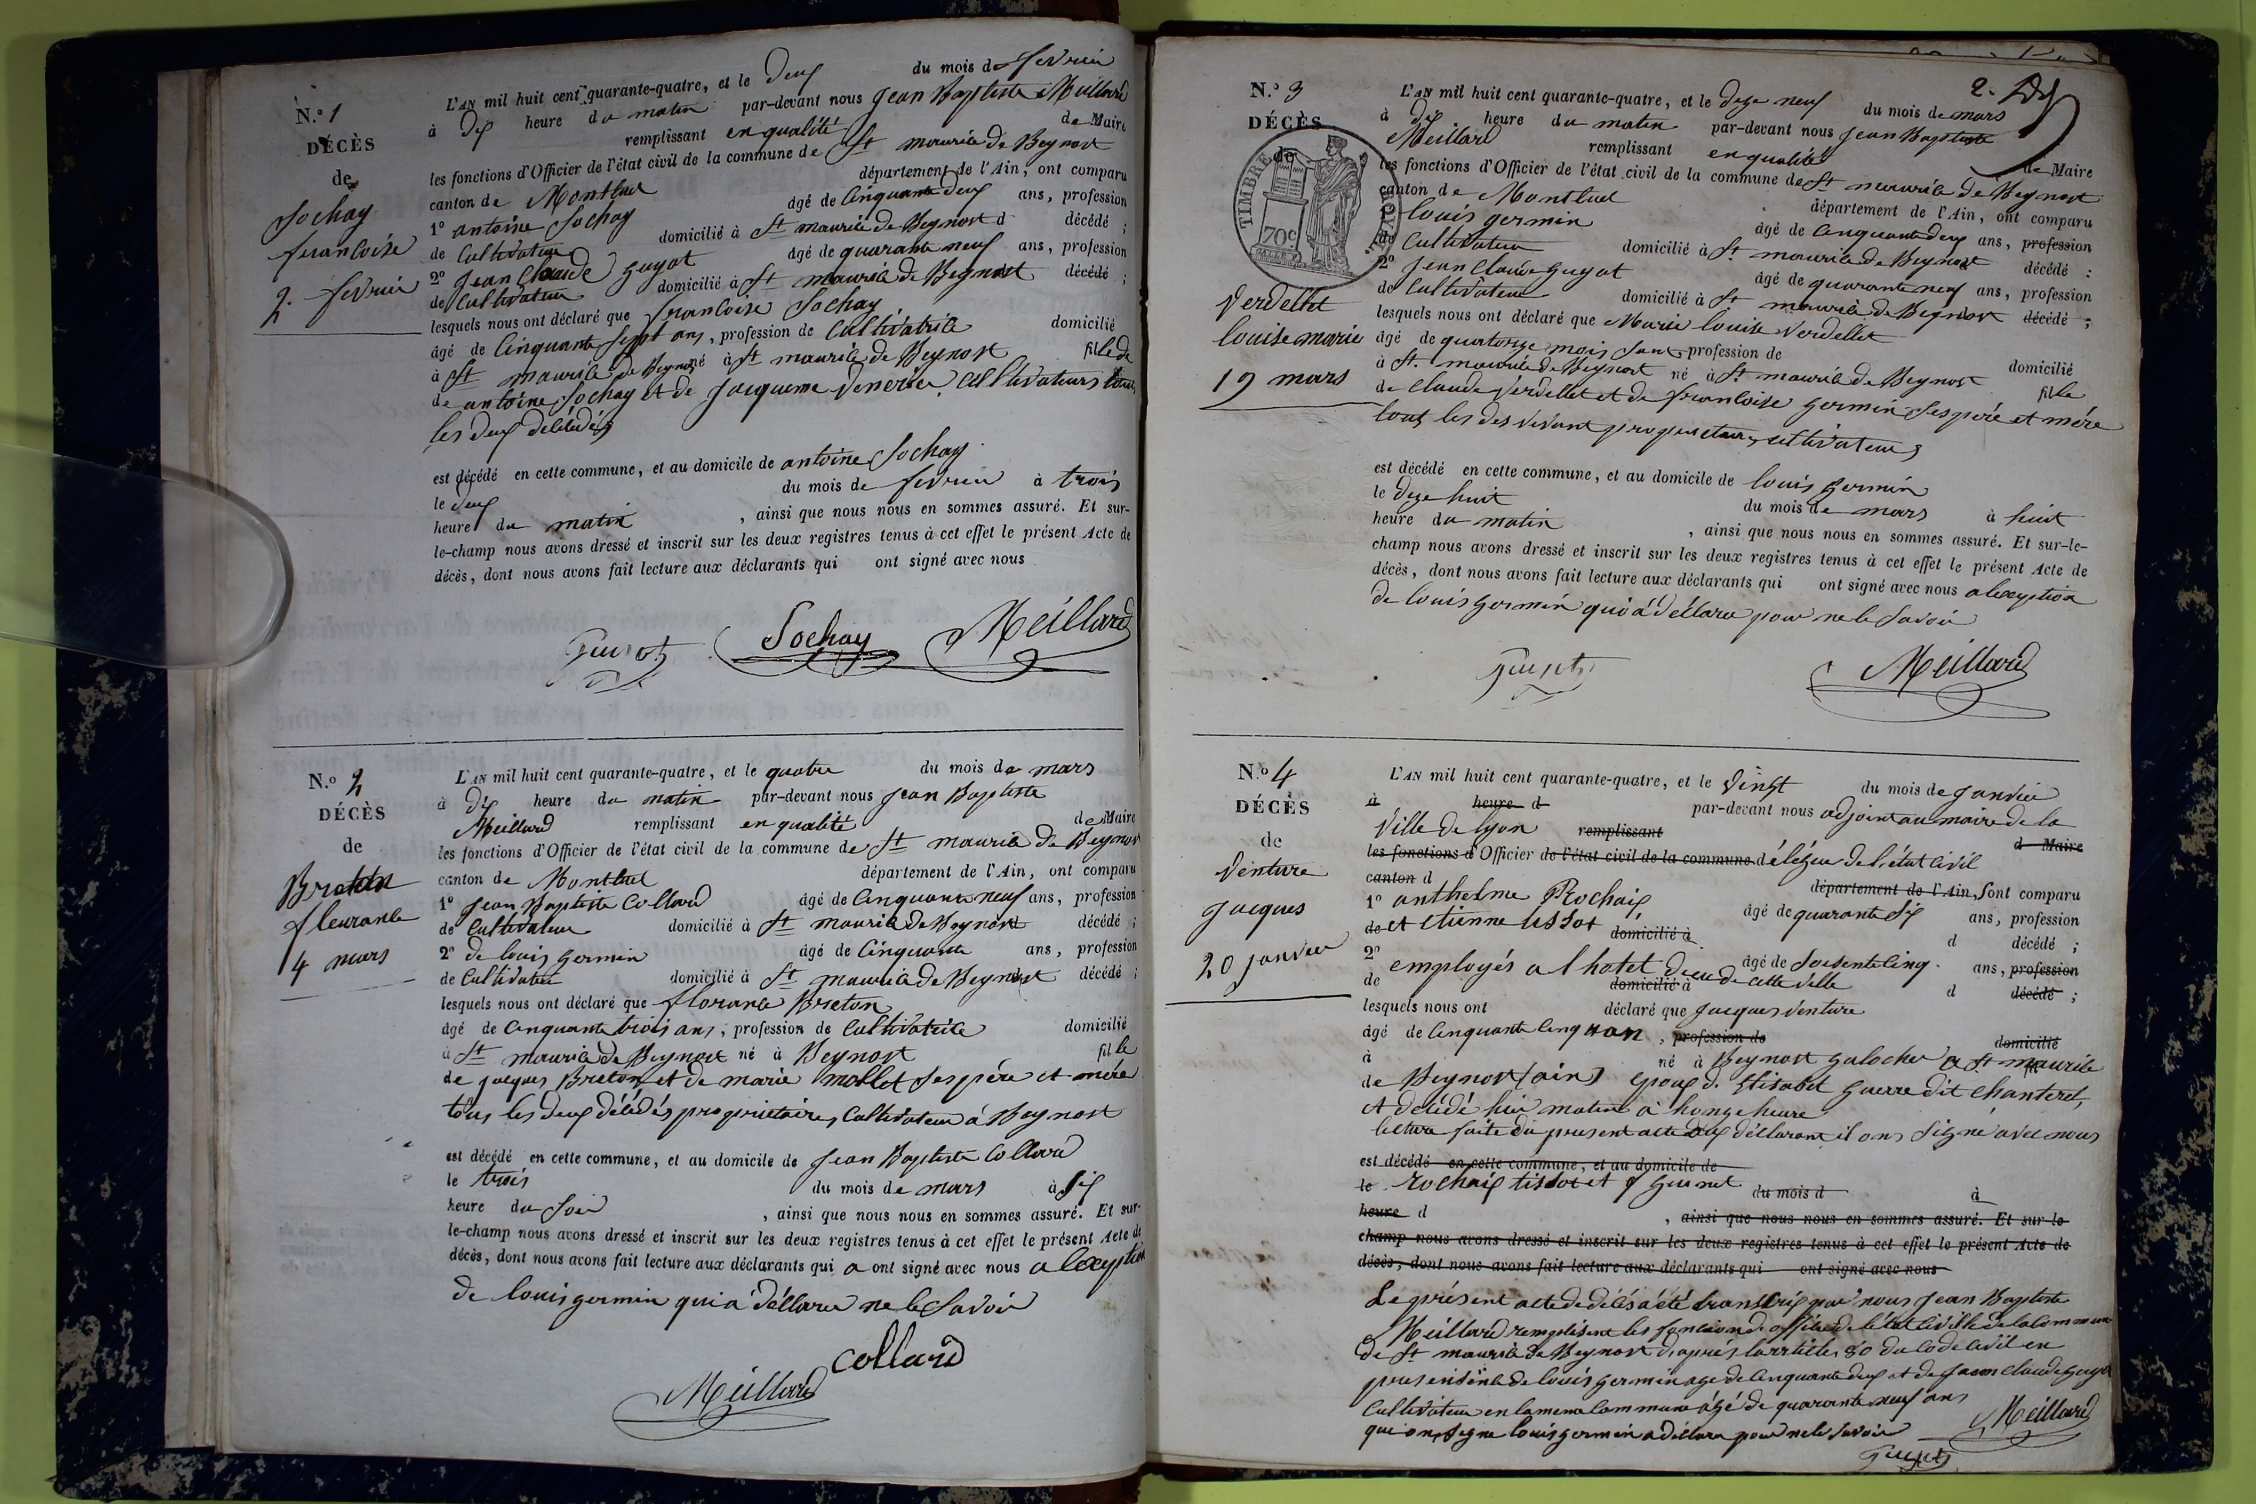 N.° 1
DÉCÈS
de
Sochay
francoise
2. fevrier
L'AN mil huit cent quarante-quatre, et le deux du mois de fevrier
à dix heure du matin par-devant nous Jean Baptiste Meillard
remplissant en qualité de Maire
les fonctions d'Officier de l'état civil de la commune de St maurice de Beynost
canton de Montluel département de l'Ain, ont comparu
1° antoine Sochay âgé de Cinquante deux ans, profession
de Cultivateur domicilié à St maurice de Beynost d décédé ;
2° Jean Claude Guyot âgé de quarante neuf ans, profession
de Cultivateur domicilié à St maurice de Beynost décédé ;
lesquels nous ont déclaré que francoise Sochay
âgé de Cinquante Sept ans, profession de Cultivatrice domicilié
à St maurice de Beynost né à St maurice de Beynost fille de
de antoine Sochay et de Jacqueme Cultivateurs tous
les deux décédés
est décédé en cette commune, et au domicile de antoine Sochay
le deux du mois de fevrier à trois
heure du matin , ainsi que nous nous en sommes assuré. Et sur-
le-champ nous avons dressé et inscrit sur les deux registres tenus à cet effet le présent Acte de
décès, dont nous avons fait lecture aux déclarants qui ont signé avec nous
Guyot Sochay Meillard
N.° 2
DÉCÈS
de
Breton
fleurance
4 mars
L'AN mil huit cent quarante-quatre, et le quatre du mois de mars
à dix heure du matin par-devant nous Jean Baptiste
Meillard remplissant en qualité de Maire
les fonctions d'Officier de l'état civil de la commune de St maurice de Beynost
canton de Montluel département de l'Ain, ont comparu
1° Jean Baptiste Collard âgé de Cinquante neuf ans, profession
de Cultivateur domicilié à St maurice de Beynost décédé ;
2° de louis germin âgé de Cinquante ans, profession
de Cultivateur domicilié à St maurice de Beynost décédé ;
lesquels nous ont déclaré que florance Breton
âgé de Cinquante trois ans, profession de Cultivatrice domicilié
à St maurice de Beynost né à Beynost fille
de jacques Breton et de marie mollet Ses père et mère
tous les deux décédés proprietaires Cultivateur à Beynost
est décédé en cette commune, et au domicile de Jean Baptiste Collard
le trois du mois de mars à six
heure du Soir , ainsi que nous nous en sommes assuré. Et sur-
le-champ nous avons dressé et inscrit sur les deux registres tenus à cet effet le présent Acte de
décès, dont nous avons fait lecture aux déclarants qui a ont signé avec nous a lexeption
de louis germin qui a déclaré ne le Savoir
collard
Meillard
2.
N.° 3
DÉCÈS
de
TIMBRE ROYAL
70c
Verdellet
louise marie
19 mars
L'AN mil huit cent quarante-quatre, et le dize neuf du mois de mars
à dix heure du matin par-devant nous Jean Baptiste
Meillard remplissant en qualité de Maire
les fonctions d'Officier de l'état civil de la commune de St maurice de Beynost
canton de Montluel département de l'Ain, ont comparu
louis germin âgé de Cinquante deux ans, profession
de Cultivateur domicilié à St maurice de Beynost décédé ;
2° Jean Claude Guyot âgé de quarante neuf ans, profession
de Cultivateur domicilié à St maurice de Beynost décédé ;
lesquels nous ont déclaré que Marie louise Verdellet
âgé de quatorze mois Sant profession de domicilié
à St. maurice de Beynost né à St maurice de Beynost fille
de Claude Verdellet et de francoise germin Ses père et mère
tous les des vivant proprietaire, cultivateurs
est décédé en cette commune, et au domicile de louis germin
le dize huit du mois de mars à huit
heure du matin , ainsi que nous nous en sommes assuré. Et sur-le-
champ nous avons dressé et inscrit sur les deux registres tenus à cet effet le présent Acte de
décès, dont nous avons fait lecture aux déclarants qui ont signé avec nous a lexeption
de louis germin qui a déclaré pour ne le Savoir
Guyot Meillard
N.° 4
DÉCÈS
de
Venture
Jacques
20 janvier
L'AN mil huit cent quarante-quatre, et le Vingt du mois de janvier
à heure d par-devant nous adjoint au maire de la
Ville de lyon remplissant d Maire
les fonctions d'Officier de l'état civil de la commune délégué de l'état Civil
canton d département de l'Ain, Sont comparu
1° anthelme Rochaix âgé de quarante Six ans, profession
de et Etienne tissot domicilié à d décédé ;
2° employés a l hotel dieu de cette Ville âgé de Soisente Cinq ans, profession
de domicilié à d décédé ;
lesquels nous ont déclaré que Jacques Venture
âgé de Cinquante Cinq ans, profession de domicilié
à né à Beynost galocher a St maurice
de Beynost (ain) Epoux d. Elisabet Guerre dit Chanteret,
et décédé hier matin à honze heure
lecture faite du present acte aux déclarant il ons Signé avec nous
est décédé en cette commune, et au domicile de
le Rochaix tissot et du mois d à
heure d , ainsi que nous nous en sommes assuré. Et sur-le
champ nous avons dressé et inscrit sur les deux registres tenus à cet effet le présent Acte de
décès, dont nous avons fait lecture aux déclarants qui ont signé avec nous
Le présent acte de décès a été transcrix par nous Jean Baptiste
Meillard remplisent les fonction de officier de l'état Civil de la Commune
de St maurice de Beynost d'après l'article 80 du Code Civil en
presence de louis germin age de Cinquante deux et de Jean Claude Guyot
Cultivateur en la meme Commune âgé de quarante neuf ans
qui on Signe louis germin a déclare pour ne le Savoir
Meillard
Guyot